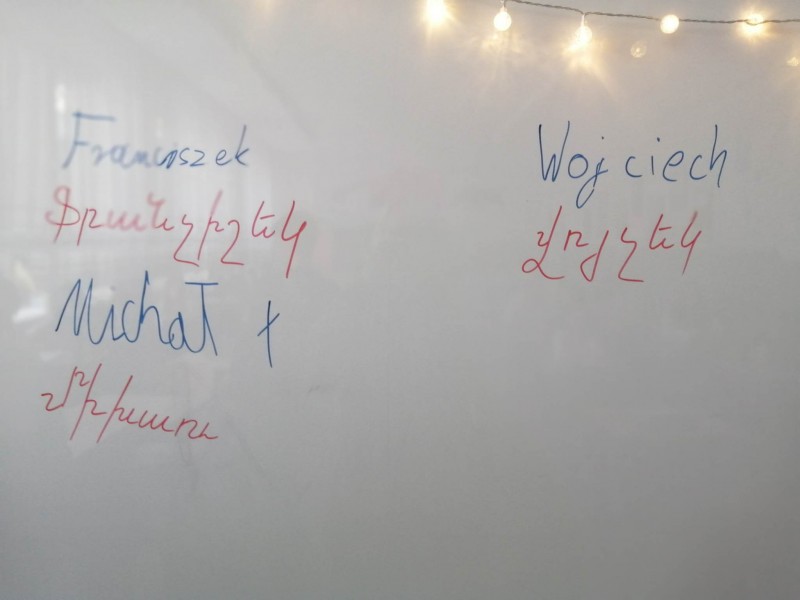 Franciszek
Ֆրանչիշեկ
Michał ł
Միխաու
Wojciech
Վոյչեկ